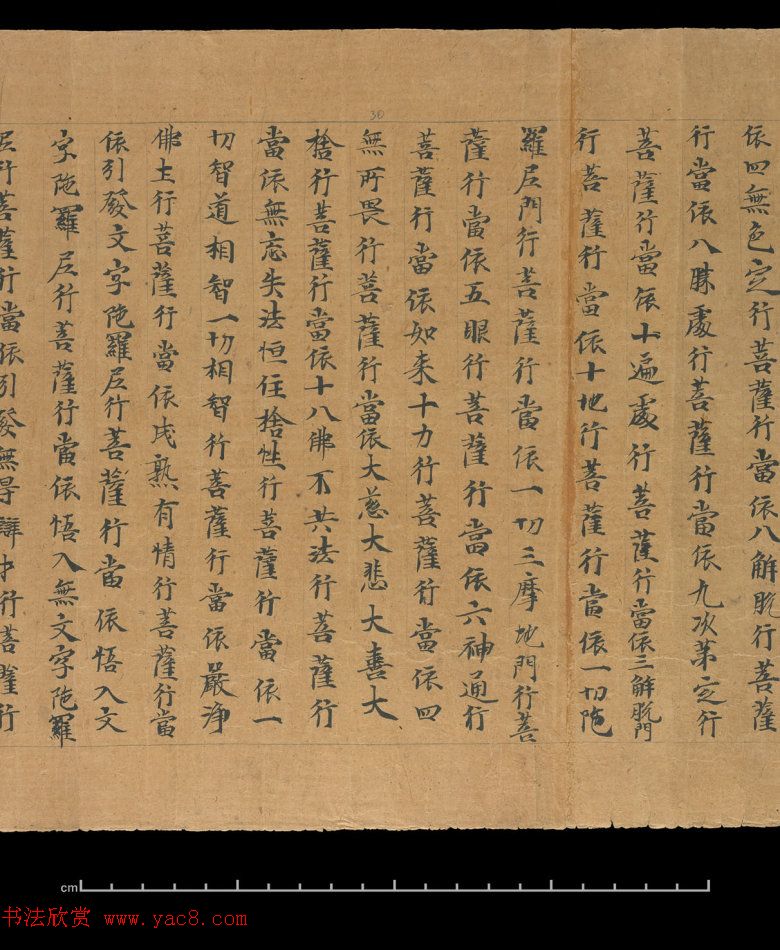 依四無色定行菩薩行當依八解脫行菩薩
行當依八勝處行菩薩行當依九次第定行
菩薩行當依十遍處行菩薩行當依三解脫門
行菩薩行當依十地行菩薩行當依一切陁
羅尼門行菩薩行當依一切三摩地門行菩
薩行當依五眼行菩薩行當依六神通行
菩薩行當依如来十力行菩薩行當依四
無所畏行菩薩行當依大慈大悲大喜大
捨行菩薩行當依十八佛不共法行菩薩行
當依無忘失法恒住捨性行菩薩行當依一
切智道相智一切相智行菩薩行當依嚴淨
佛土行菩薩行當依成熟有情行菩薩行當
依引發文字陁羅尼行菩薩行當依悟入文
字陁羅尼行菩薩行當依悟入無文字陁羅
尼行菩薩行當依引發無㝵辯才行菩薩行
30
cm
书法欣赏 www.yac8.com